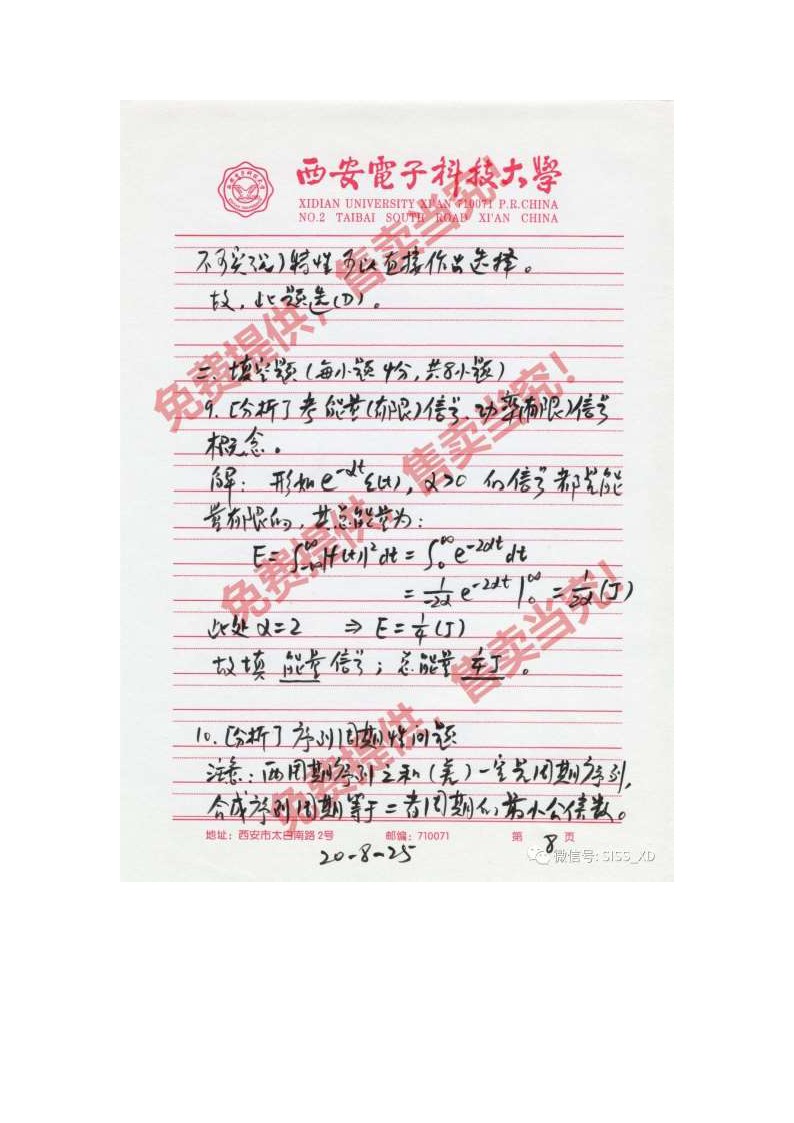 西安電子科技大學
XIDIAN UNIVERSITY XI'AN 710071 P.R.CHINA
NO.2 TAIBAI SOUTH ROAD XI'AN CHINA
不可实现)特性可以直接作出选择。
故,此题选(D)。
二、填空题(每小题4分,共8小题)
9.[分析]考能量(有限)信号、功率(有限)信号
概念。
解:形如e^{-αt}ε(t),α>0的信号都是能
量有限的,其总能量为:
E=∫_{-∞}^{∞}|f(t)|²dt=∫_0^∞e^{-2αt}dt
=\frac{1}{-2α}e^{-2αt}|_0^∞=\frac{1}{2α}(J)
此处α=2 ⇒ E=\frac{1}{4}(J)
故填 能量 信号;总能量 \frac{1}{4}J 。
10.[分析]序列周期性问题
注意:两周期序列之和(差)一定是周期序列,
合成序列周期等于二者周期的最小公倍数。
地址:西安市太白南路2号 邮编:710071 第 8 页
20-8-25
微信号: SISS_XD
免费提供,售卖当究!
免费提供,售卖当究!
免费提供,售卖当究!